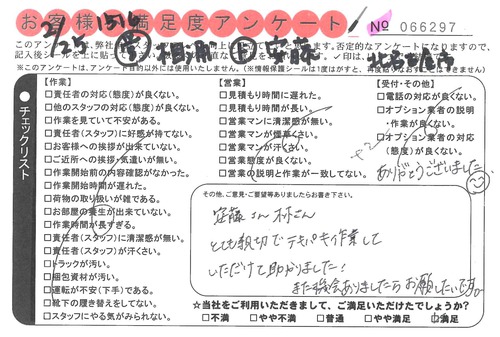 お客様満足度アンケート
No 066297
2/25 1516
安藤
このアンケー
※このアンケートは、アンケート目的以外には使用いたしません。(情報保護シールは1度はがすと、再度貼りなおすことはできません)
チェックリスト
【作業】
□責任者の対応(態度)が良くない。
□他のスタッフの対応(態度)が良くない。
□作業を見ていて不安がある。
□責任者(スタッフ)に好感が持てない。
□お客様への挨拶が出来ていない。
□ご近所への挨拶・気遣いが無い。
□作業開始前の内容確認がなかった。
□作業開始時間が遅れた。
□荷物の取り扱いが雑である。
□お部屋の養生が出来ていない。
□作業時間が長すぎる。
□責任者(スタッフ)に清潔感が無い。
□責任者(スタッフ)が汗くさい。
□トラックが汚い。
□梱包資材が汚い。
□運転が不安(下手)である。
□靴下の履き替えをしてない。
□スタッフにやる気がみられない。
【営業】
□見積もり時間に遅れた。
□見積もり時間が長い。
□営業マンに清潔感が無い。
□営業マンが煙草くさい。
□営業マンが汗くさい。
□営業態度が良くない。
□営業の説明と作業が一致してない。
【受付・その他】
□電話の対応が良くない。
□オプション業者の説明
・作業が良くない。
□オプション業者の対応
(態度)が良くない。
ありがとうございました
その他、ご意見・ご要望等ありましたらお書き下さい。
安藤さん 林さん
とても親切でテキパキ作業して
いただけて助かりました!
また機会ありましたらお願したいです。
☆当社をご利用いただきまして、ご満足いただけたでしょうか?
□不満 □やや不満 □普通 □やや満足 □満足